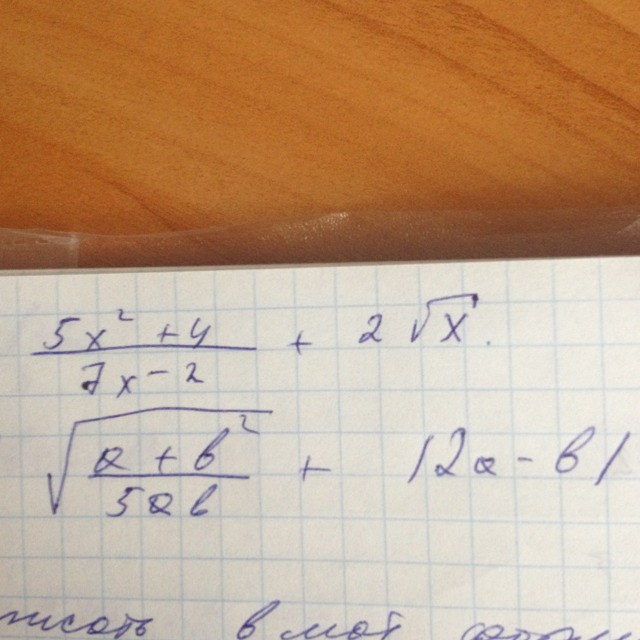 (5x² + y) / (7x - 2) + 2√x.
√((a + b²) / (5ab)) + |2a - b|
писать в мат